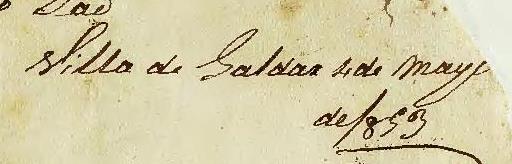 Villa de Galdar 4 de Mayo
de 1853